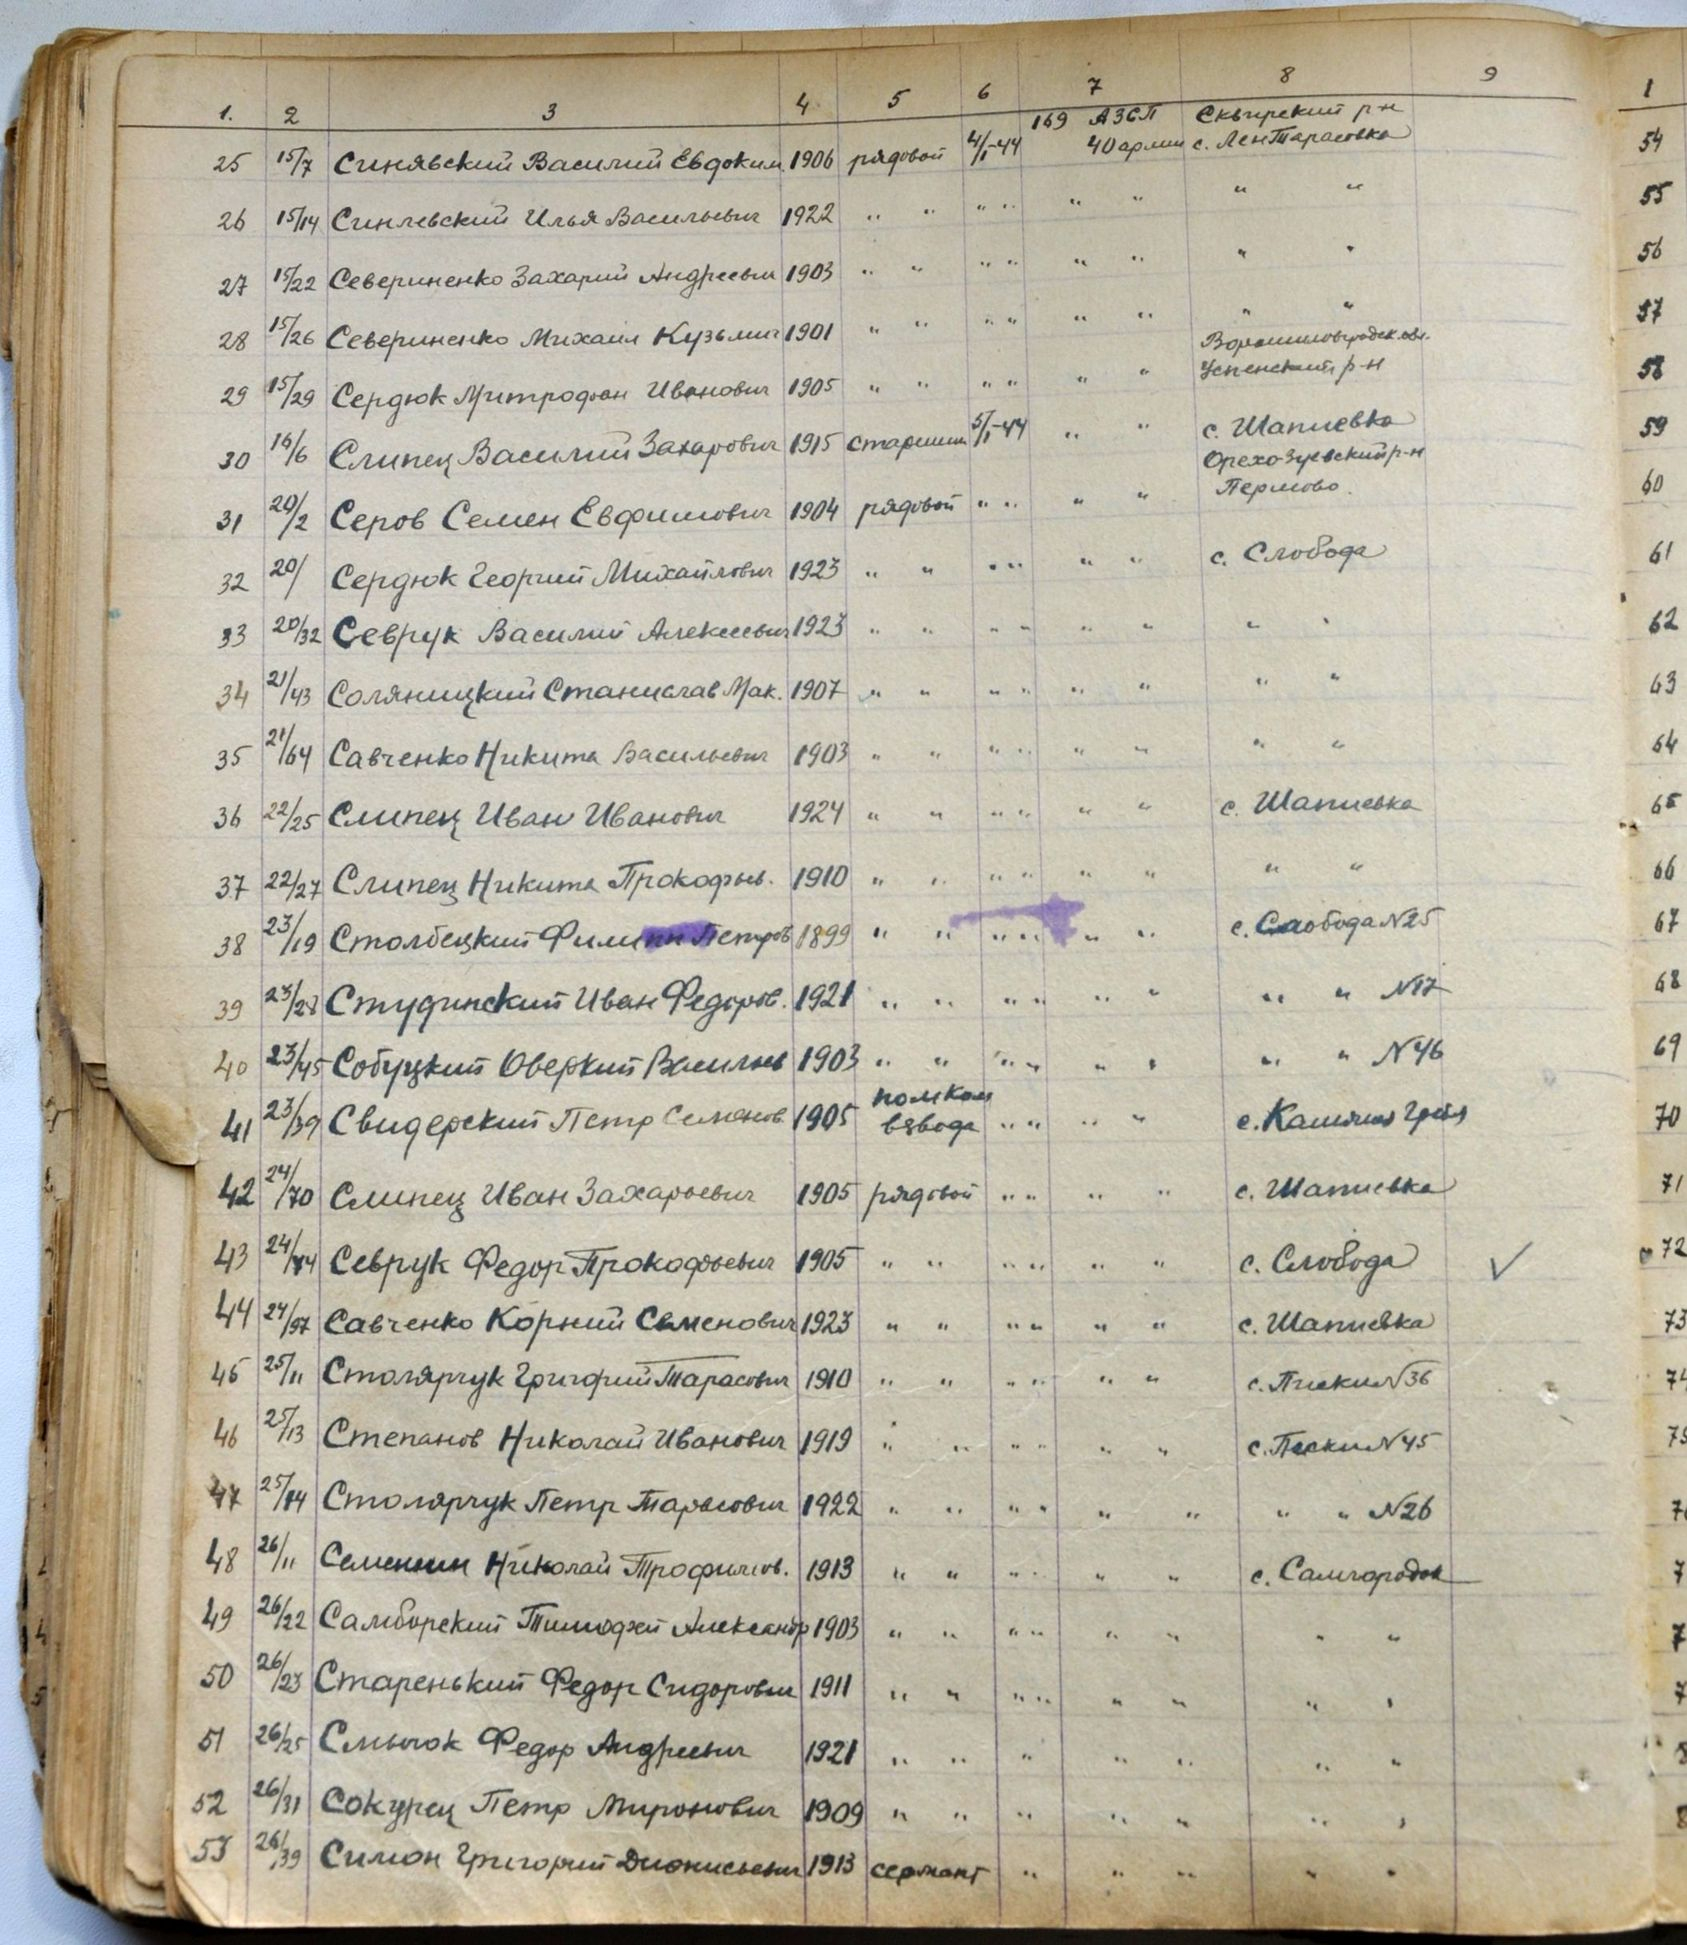 1. 2 3 4 5 6 7 8 9
169 АЗСП Сквирский р-н
25 15/7 Синявский Василий Евдоким. 1906 рядовой 4/I-44 40 армии с. Лен Тарасовка
26 15/14 Синявский Илья Васильевич 1922 " " " " " " " "
27 15/22 Севериненко Захарий Андреевич 1903 " " " " " " " "
28 15/26 Севериненко Михаил Кузьмич 1901 " " " " " " " "
Ворошиловградск. обл.
29 15/29 Сердюк Митрофан Иванович 1905 " " " " " " Успенский р-н
30 16/6 Слипец Василий Захарович 1915 старшина 5/I-44 " " с. Шапиевка
Орехо-Зуевский р-н
31 20/2 Серов Семен Евфимович 1904 рядовой " " " " Перлово.
32 20/ Сердюк Георгий Михайлович 1923 " " " " " " с. Слобода
33 20/32 Севрук Василий Алексеевич 1923 " " " " " " " "
34 21/43 Соляницкий Станислав Мак. 1907 " " " " " " " "
35 21/64 Савченко Никита Васильевич 1903 " " " " " " " "
36 22/25 Слипец Иван Иванович 1924 " " " " " " с. Шапиевка
37 22/27 Слипец Никита Прокофьев. 1910 " " " " " " " "
38 23/19 Столбецкий Филипп Петров 1899 " " " " " " с. Слобода N25
39 23/28 Студинский Иван Федоров. 1921 " " " " " " " " N17
40 23/45 Собуцкий Оверкий Васильев 1903 " " " " " " " " N46
помком
41 23/39 Свидерский Петр Семенов 1905 взвода " " " " с. Каминая
42 24/70 Слипец Иван Захарьевич 1905 рядовой " " " " с. Шапиевка
43 24/74 Севрук Федор Прокофьевич 1905 " " " " " " с. Слобода ✓
44 24/97 Савченко Корний Семенович 1923 " " " " " " с. Шапиевка
45 25/11 Столярчук Григорий Тарасович 1910 " " " " " " с. Писки N36
46 25/13 Степанов Николай Иванович 1919 " " " " " " с. Пески N45
47 25/14 Столярчук Петр Тарасович 1922 " " " " " " " " N26
48 26/11 Семенин Николай Трофимов. 1913 " " " " " " с. Самгородок
49 26/22 Самборский Тимофей Александр 1903 " " " " " " " "
50 26/23 Старенький Федор Сидорович 1911 " " " " " " " "
51 26/25 Смычок Федор Андреевич 1921 " " " " " " "
52 26/31 Сокурец Петр Миронович 1909 " " " " " " "
53 26/39 Симон Григорий Дионисьевич 1913 сержант " " " " "
1
54
55
56
57
58
59
60
61
62
63
64
65
66
67
68
69
70
71
72
73